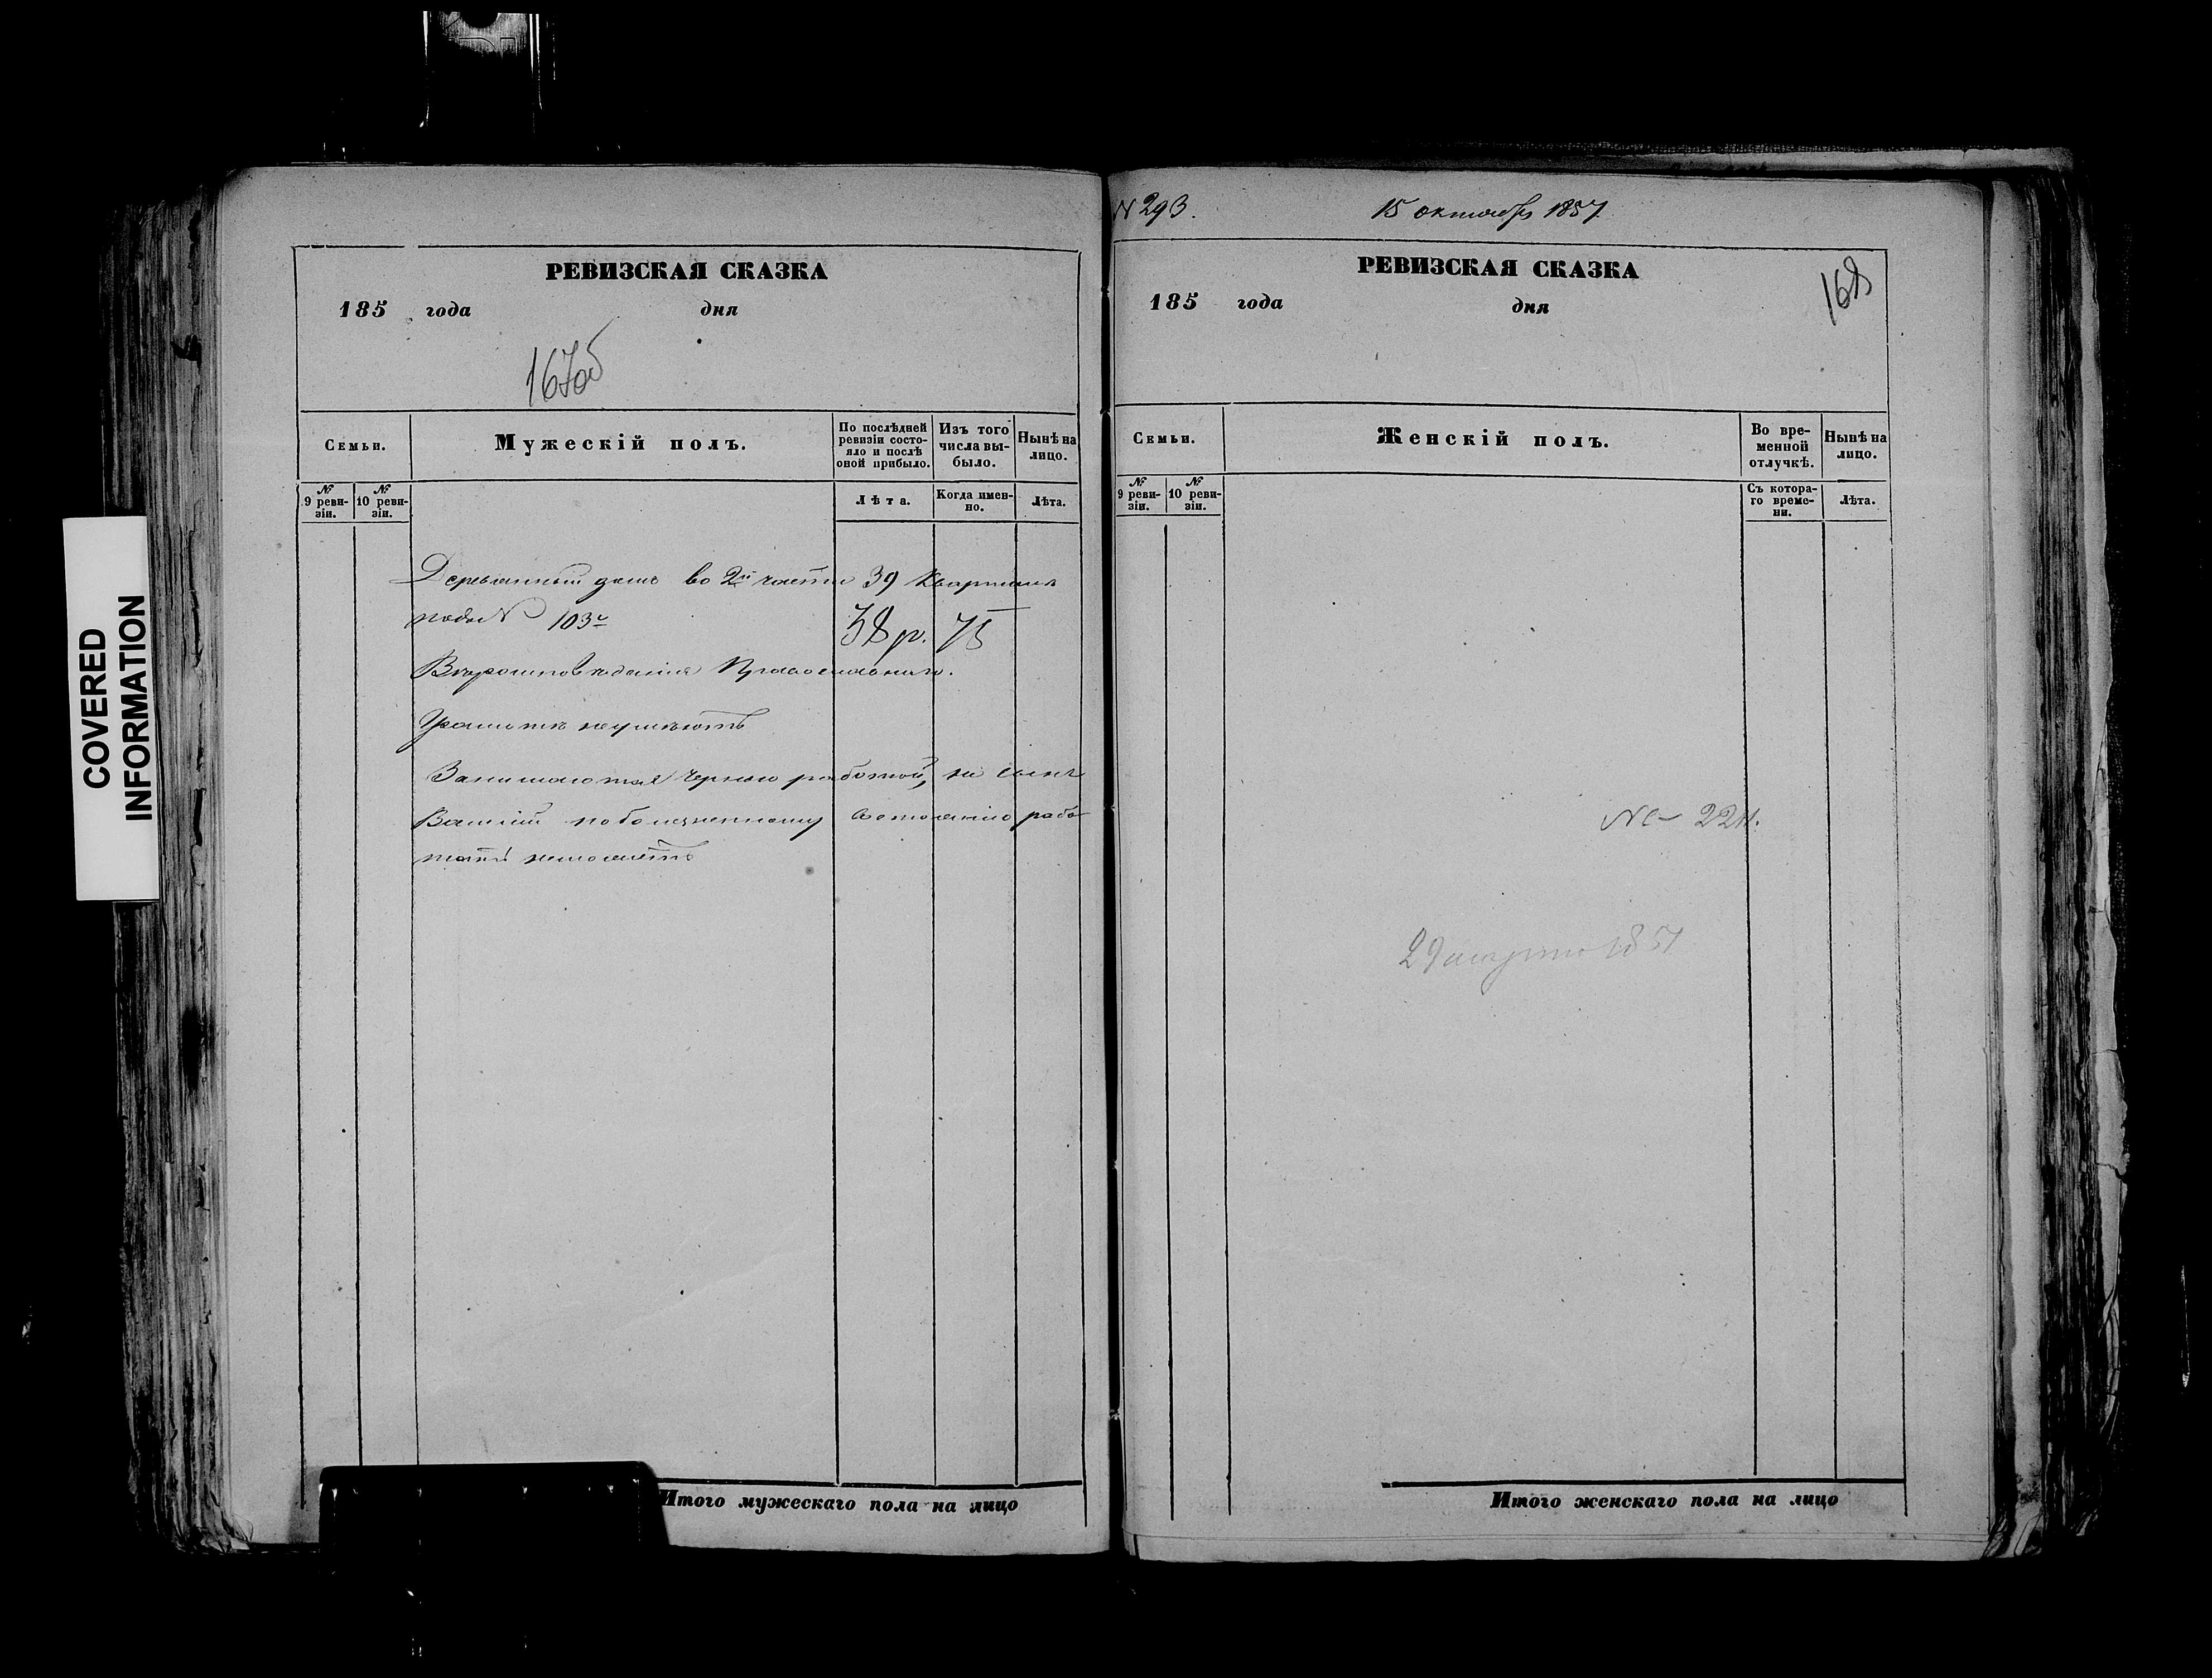 COVERED
INFORMATION
РЕВИЗСКАЯ СКАЗКА
185 года дня
167об
Семьи.
Мужескій полъ.
По послѣдней ревизіи состояло и послѣ оной прибыло.
Изъ того числа выбыло.
Нынѣ на лицо.
№ 9 ревизіи.
№ 10 ревизіи.
Лѣта.
Когда именно.
Лѣта.
Деревянный домъ во 2й части 39 квартала
подъ № 103м
38 р. 75
Вѣроисповѣданія Православнаго.
Грамотѣ неумѣютъ
Занимаются черною работой, но сынъ
Василій поболезненному состоянію рабо
тать неможетъ
Итого мужескаго пола на лицо
N 293.
15 октября 1857
РЕВИЗСКАЯ СКАЗКА
185 года дня
168
Семьи.
Женскій полъ.
Во временной отлучкѣ.
Нынѣ на лицо.
№ 9 ревизіи.
№ 10 ревизіи.
Съ котораго времени.
Лѣта.
29 1857
Итого женскаго пола на лицо